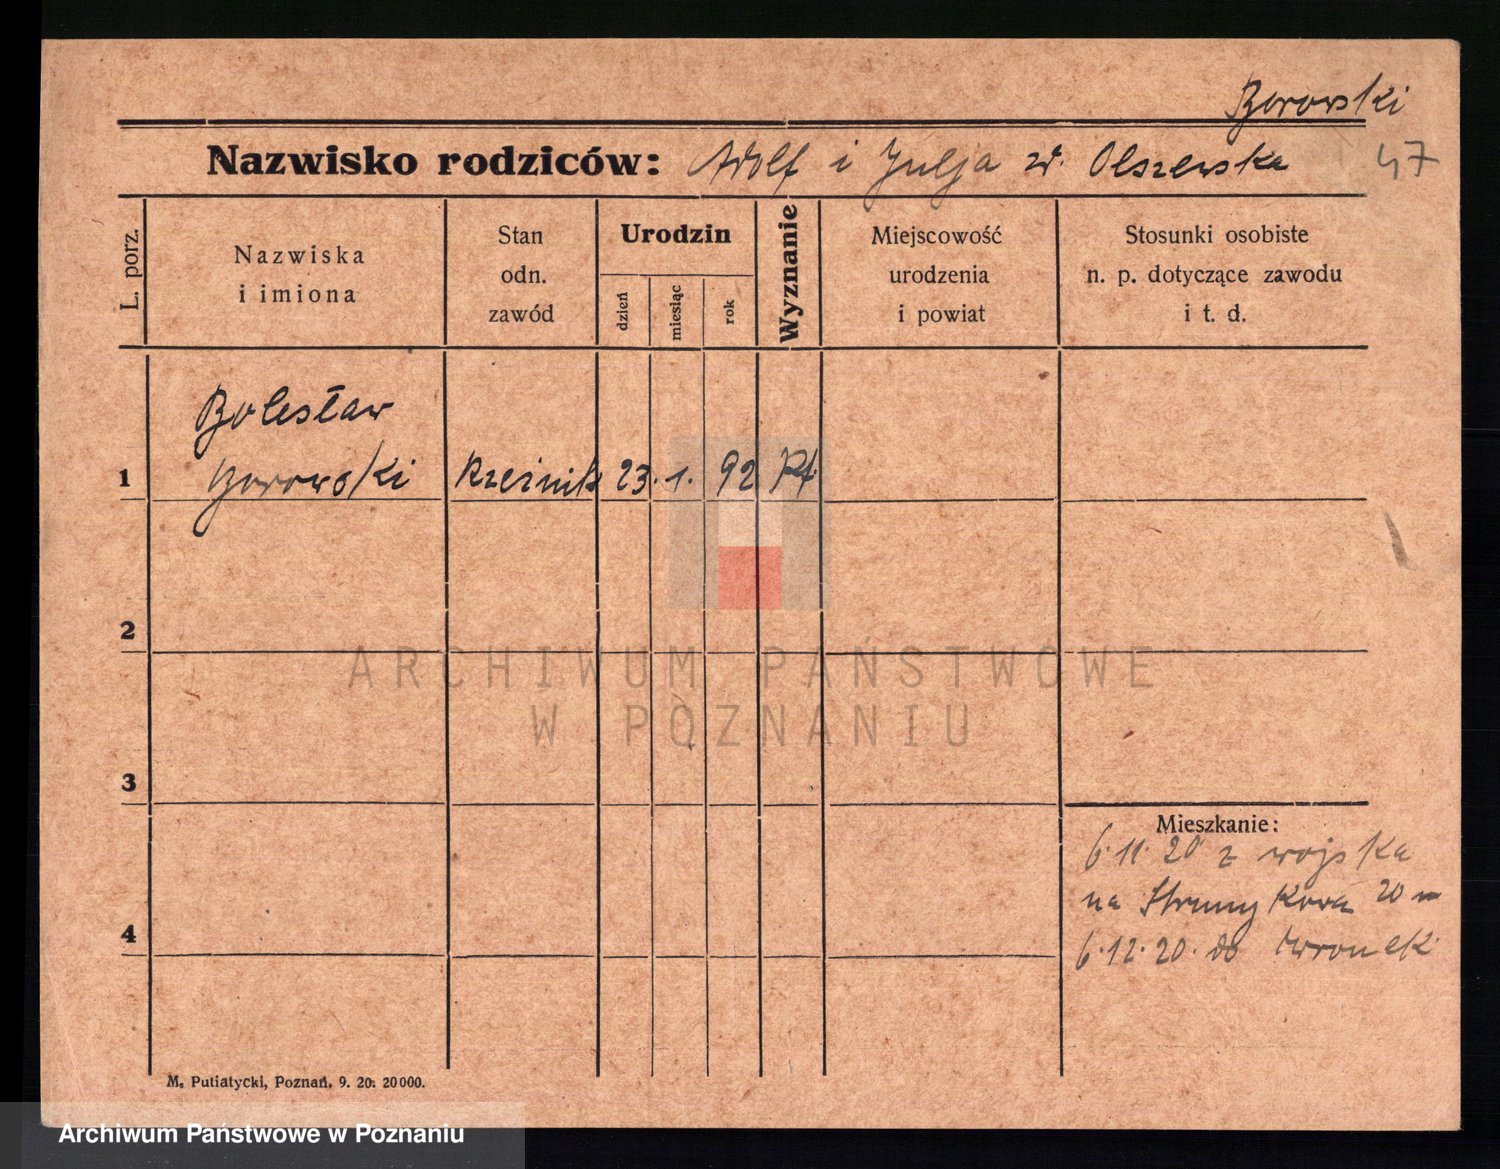 Borowski
Nazwisko rodziców: Adolf i Julja z d. Olszewska 47
L. porz.
Nazwiska
i imiona
Stan
odn.
zawód
Urodzin
dzień
miesiąc
rok
Wyznanie
Miejscowość
urodzenia
i powiat
Stosunki osobiste
n. p. dotyczące zawodu
i t. d.
Bolesław
1 Borowski Rzeźnik 23. 1. 92 Kt.
2
3
4
ARCHIWUM PAŃSTWOWE
W POZNANIU
Mieszkanie:
6.11.20 z wojska
na Strumykowa 20
6.12.20. do Wronek
M. Putiatycki, Poznań. 9. 20. 20000.
Archiwum Państwowe w Poznaniu